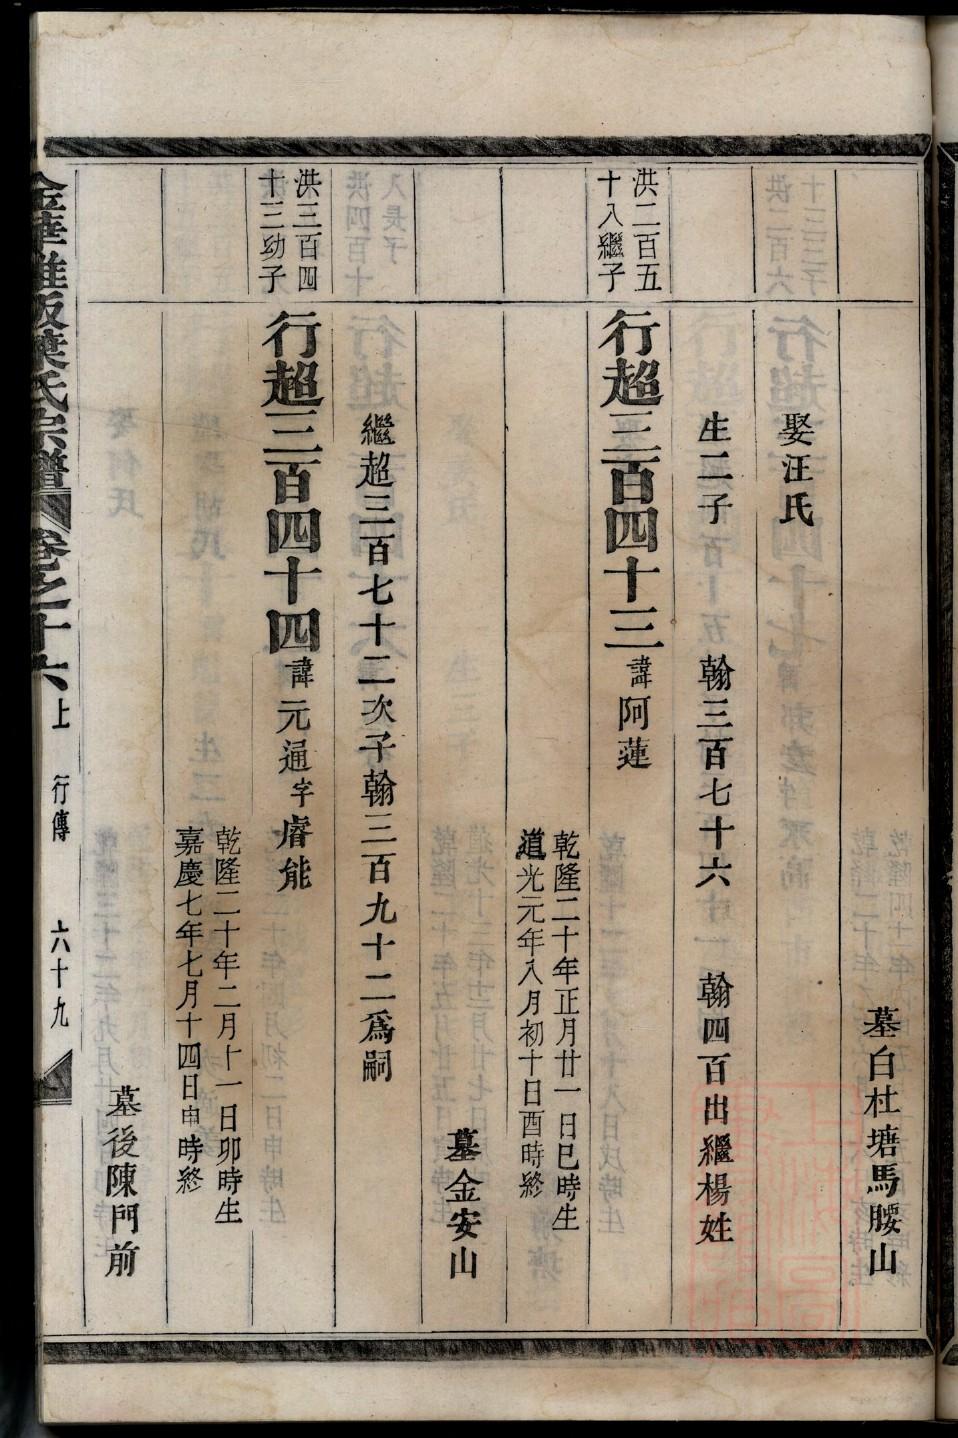 墓白杜塘馬腰山
娶汪氏
生二子 翰三百七十六 翰四百出繼楊姓
洪二百五
十八繼子
行超三百四十三 諱阿蓮
乾隆二十年正月廿一日巳時生
道光元年八月初十日酉時終
墓金安山
繼超三百七十二次子翰三百九十二爲嗣
洪三百四
十三幼子
行超三百四十四 諱元通字睿能
乾隆二十年二月十一日卯時生
嘉慶七年七月十四日申時終
墓後陳門前
氏宗譜 卷之十六上 行傳 六十九